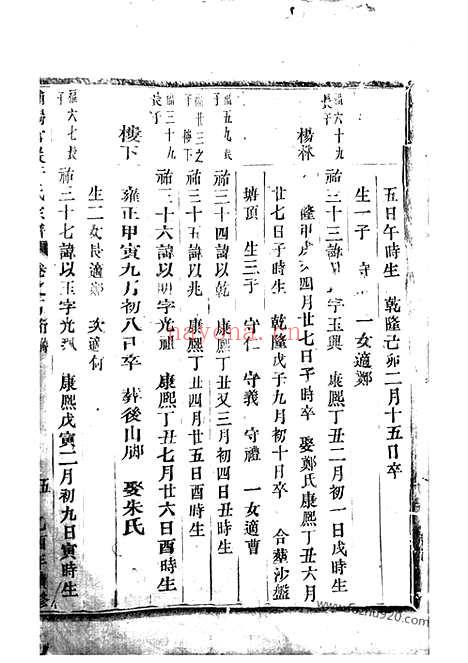 五日午時生 乾隆己卯二月十五日卒
生一子 守 一女適鄭
福六十九長子 祐三十三諱以 字玉興 康熙丁丑二月初一日戌時生
楊林 隆甲 四月廿七日子時卒 娶鄭氏康熙丁丑六月
廿七日子時生 乾隆戊子九月初十日卒 合葬沙盤
塘頂 生三子 守仁 守義 守禮 一女適曹
福五九長子 祐三十四諱以乾 康熙丁丑又三月初四日丑時生
福廿三之子 祐三十五諱以兆 康熙丁丑四月廿五日酉時生
福三十九長子 祐三十六諱以明字光 康熙丁丑七月廿六日酉時生
樓下 雍正甲寅九月初八日卒 葬後山脚 娶朱氏
生二女長適鄭 次適何
福六七長子 祐三十七諱以玉字光 康熙戊寅二月初九日寅時生
氏宗譜 卷之 五
nayona.cn
www.fuzhu920.com